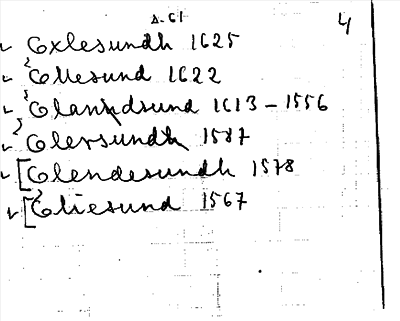 4
Oxlesundh 1625
Ollesund 1622
Olansund 1613 - 1556
Olersundh 1587
[Olendesundh 1578
[Oliesund 1567